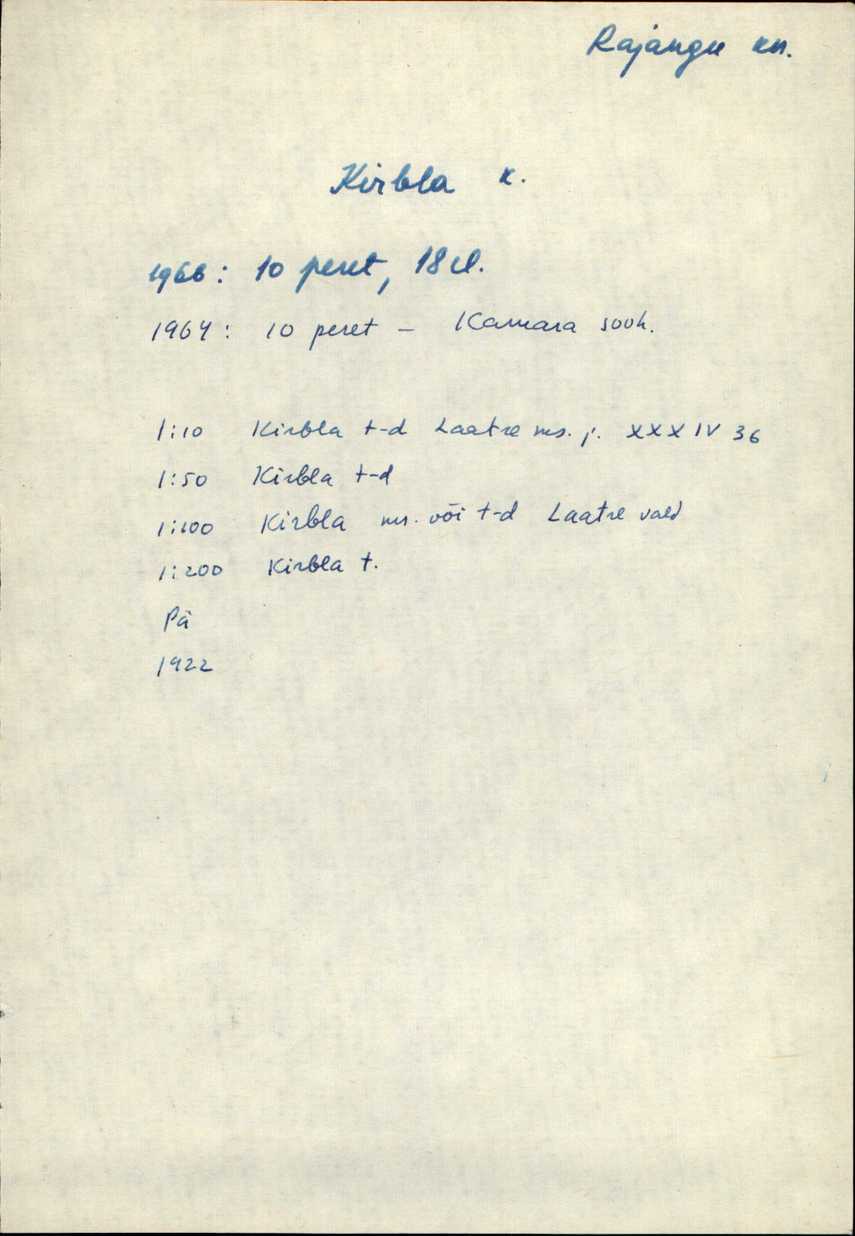 Rajangu kn.
Kirbla k.
1966: 10 peret, 18 el.
1964: 10 peret – Kamara sovh.
1:10 Kirbla t-d Laatre ms. j. XXXIV 36
1:50 Kirbla t-d
1:100 Kirbla ms. või t-d Laatre vald
1:200 Kirbla t.
Pä
1922